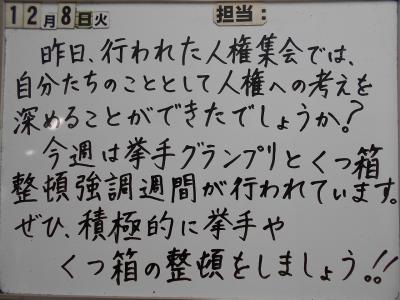 12月8日火 担当:
昨日、行われた人権集会では、
自分たちのこととして人権への考えを
深めることができたでしょうか?
今週は挙手グランプリとくつ箱
整頓強調週間が行われています。
ぜひ、積極的に挙手や
くつ箱の整頓をしましょう!!